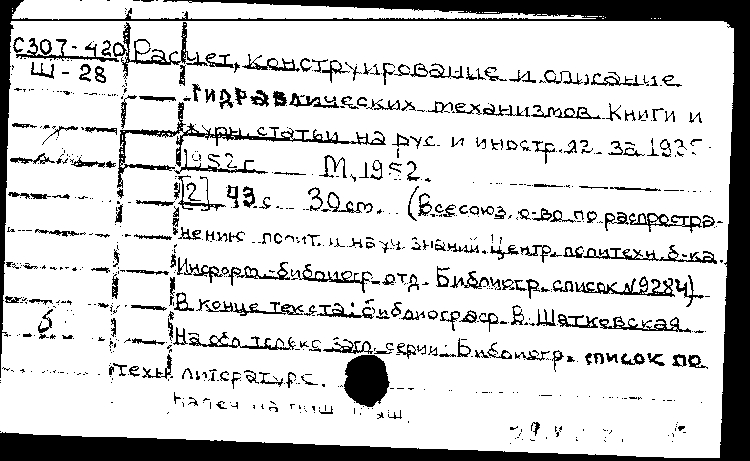 С307-420 Расчет, конструирование и описание
Ш-28
гидравлических механизмов. Книги и
журн. статьи на рус. и иностр. яз. за 1935-
1952г. М., 1952.
[2] 43 с. 30 cm. (Всесоюз. о-во по распростра-
нению полит. и науч. знаний. Центр. политехн. б-ка.
Информ.-библиогр. отд. Библиогр. список №9284)
В конце текста: библиограф В. Шатковская.
На обл. только загл. серии: Библиогр. список по
техн. литературе.
Напеч. на пиш. маш.